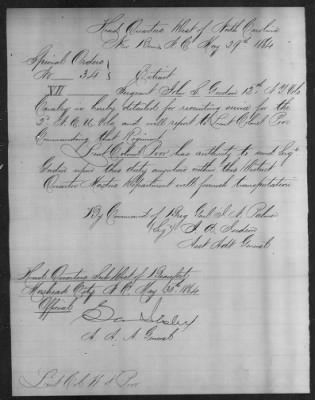 Head Quarters Dist of North Carolina
New Berne N.C. May 29th 1864
Special Orders
No 34
Extract
VII Sergeant John C. 12th N.Y. Vols
Cavalry is hereby detailed for recruiting service for the
N.C.U. Vols and will report to Lieut Colonel Poor
Commanding that Regiment
Lieut Colonel Poor has authority to send Sergt
upon this duty anywhere within this District
Quarter Masters Department will furnish transportation
By Command of Brig Genl I. N. Palmer
(Sgd) J. A. Judson
Asst Adjt General
Head Quarters Sub Dist of Beaufort
Morehead City N.C. May 30th 1864
Official
A A A General
Lieut Col W. S. Poor